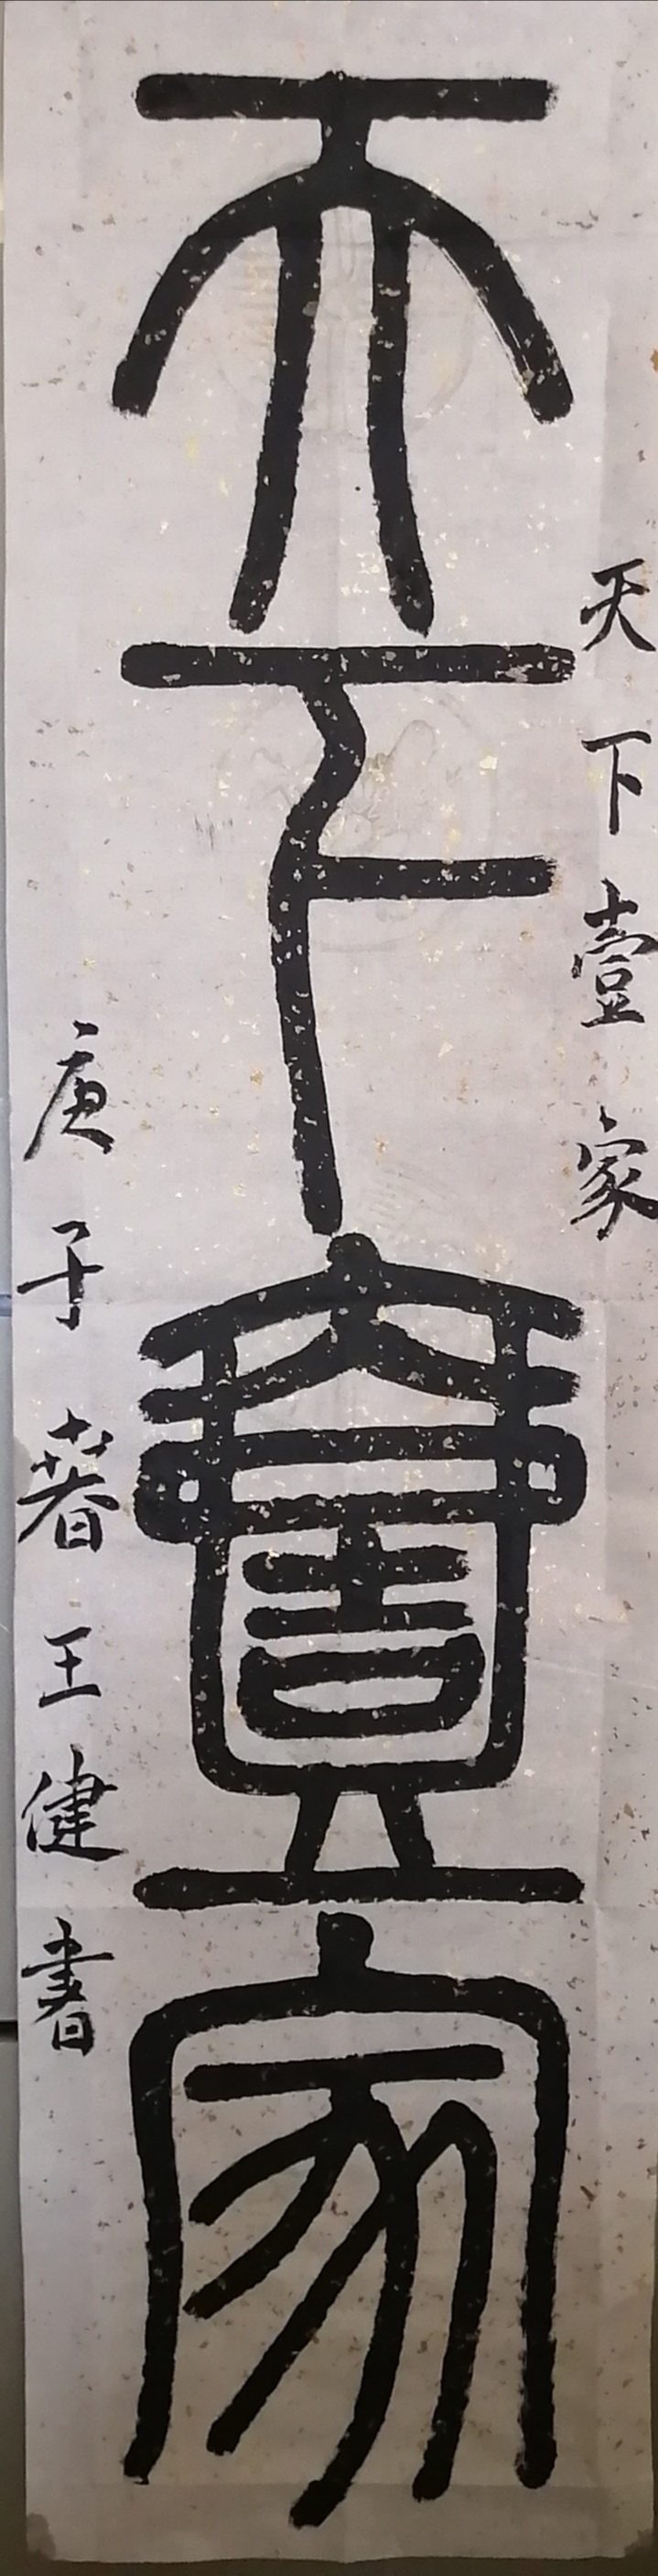 天下壹家
天下壹家
庚子春王健書